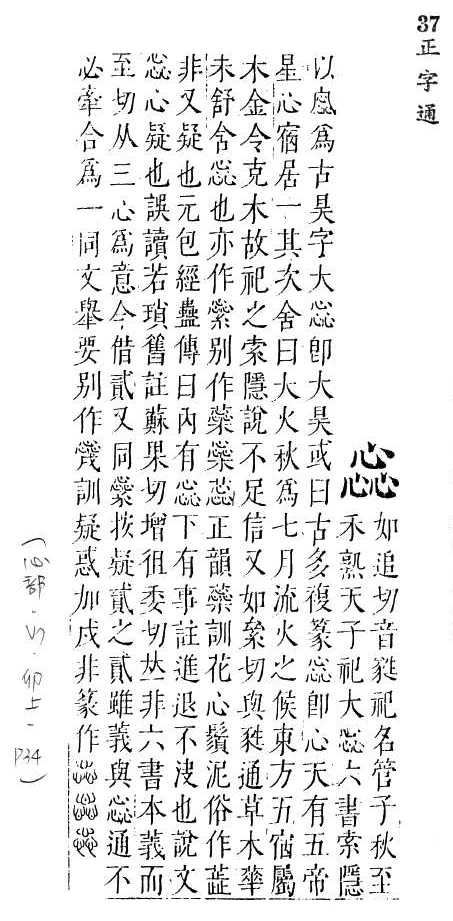 37正字通
惢
如追切音甤祀名管子秋至
禾熟天子祀大惢六書索隱
以惢爲古昊字大惢卽大昊或曰古多複篆惢卽心天有五帝
星心宿居一其次舍曰大火秋爲七月流火之候東方五宿屬
木金令克木故祀之索隱說不足信又如絫切與甤通草木華
未舒含惢也亦作縈别作蘂蕊正韻蘂訓花心鬚泥俗作蕋
非又疑也元包經蠱傳曰內有惢下有事註進退不决也說文
惢心疑也誤讀若瑣舊註蘇果切增徂委切𠀤非六書本義而
至切从三心爲意今借貳又同縈按疑貳之貳雖義與惢通不
必牽合爲一同文舉要别作訓疑惑加戍非篆作
(心部·卯上·P34)